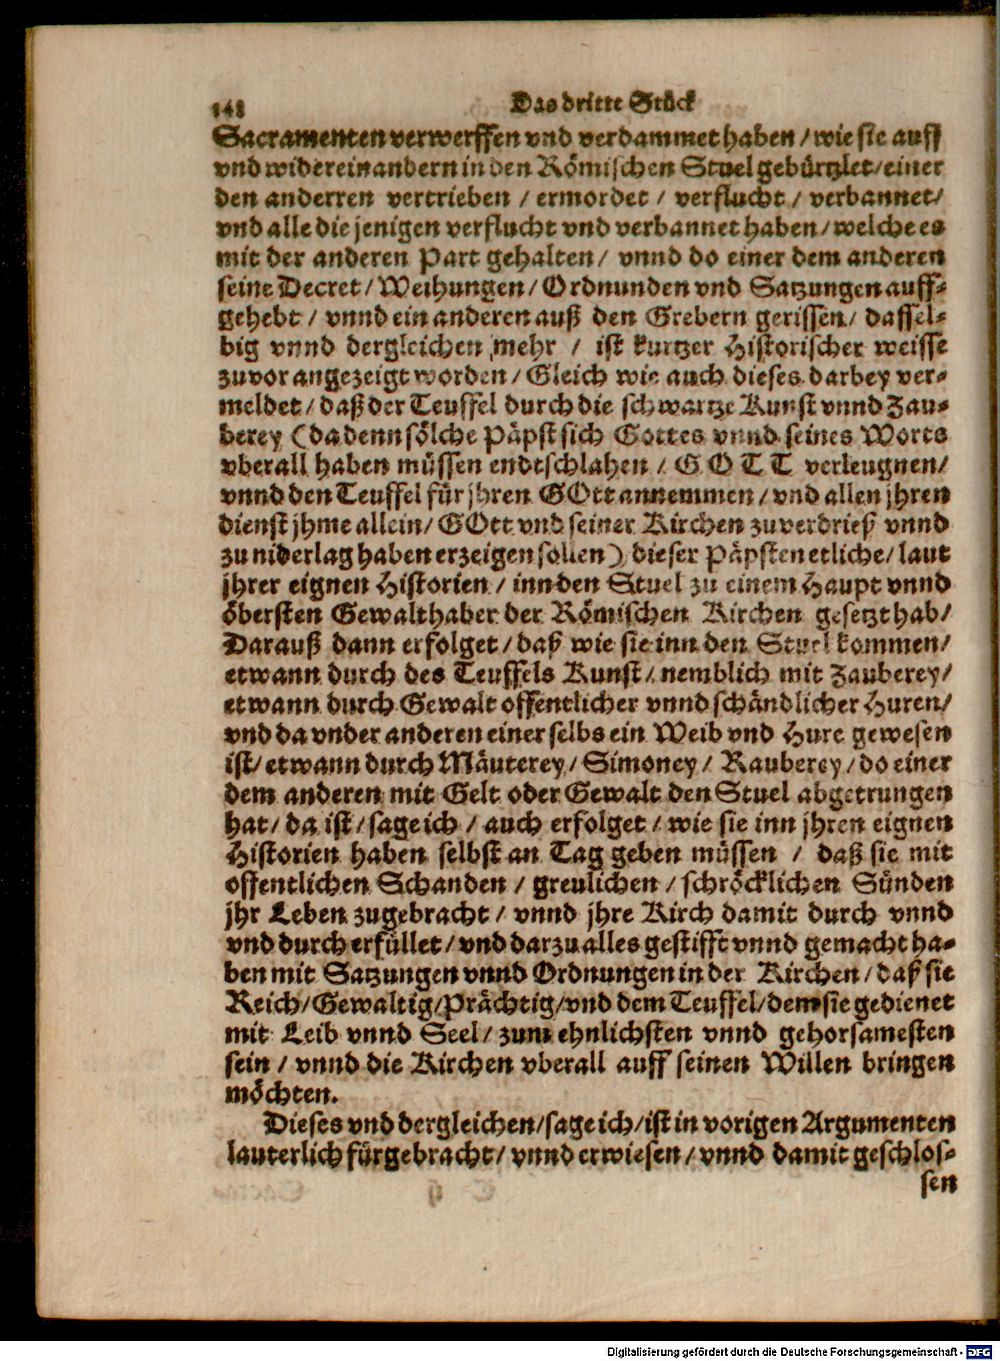 148
Das dritte Stück
Sacramenten verwerffen vnd verdammet haben / wie sie auff
vnd wider einandern in den Römischen Stuel gebürtzlet / einer
den anderren vertrieben / ermordet / verflucht / verbannet /
vnd alle die jenigen verflucht vnd verbannet haben / welche es
mit der anderen Part gehalten / vnnd do einer dem anderen
seine Decret / Weihungen / Ordnunden vnd Satzungen auff-
gehebt / vnnd ein anderen auß den Grebern gerissen / dassel-
big vnnd dergleichen mehr / ist kurtzer Historischer weisse
zuvor angezeigt worden / Gleich wie auch dieses darbey ver-
meldet / daß der Teuffel durch die schwartze Kunst vnnd Zau-
berey (da denn sölche Päpst sich Gottes vnnd seines Worts
vberall haben müssen endtschlahen / GOTT verleugnen /
vnnd den Teuffel für jhren GOtt annemmen / vnd allen jhren
dienst jhme allein / GOtt vnd seiner Kirchen zuverdrieß vnnd
zu niderlag haben erzeigen sollen) dieser Päpsten etliche / laut
jhrer eignen Historien / inn den Stuel zu einem Haupt vnnd
öbersten Gewalthaber der Römischen Kirchen gesetzt hab /
Darauß dann erfolget / daß wie sie inn den Stuel kommen /
etwann durch des Teuffels Kunst / nemblich mit Zauberey /
etwann durch Gewalt offentlicher vnnd schändlicher Huren /
vnd da vnder anderen einer selbs ein Weib vnd Hure gewesen
ist / etwann durch Mäuterey / Simoney / Rauberey / do einer
dem anderen mit Gelt oder Gewalt den Stuel abgetrungen
hat / da ist / sage ich / auch erfolget / wie sie inn jhren eignen
Historien haben selbst an Tag geben müssen / daß sie mit
offentlichen Schanden / greulichen / schröcklichen Sünden
jhr Leben zugebracht / vnnd jhre Kirch damit durch vnnd
vnd durch erfüllet / vnd darzu alles gestifft vnnd gemacht ha-
ben mit Satzungen vnnd Ordnungen in der Kirchen / daß sie
Reich / Gewaltig / Prächtig / vnd dem Teuffel / dem sie gedienet
mit Leib vnnd Seel / zum ehnlichsten vnnd gehorsamesten
sein / vnnd die Kirchen vberall auff seinen Willen bringen
möchten.
Dieses vnd dergleichen / sage ich / ist in vorigen Argumenten
lauterlich fürgebracht / vnnd erwiesen / vnnd damit geschlos-
sen
Digitalisierung gefördert durch die Deutsche Forschungsgemeinschaft - DFG